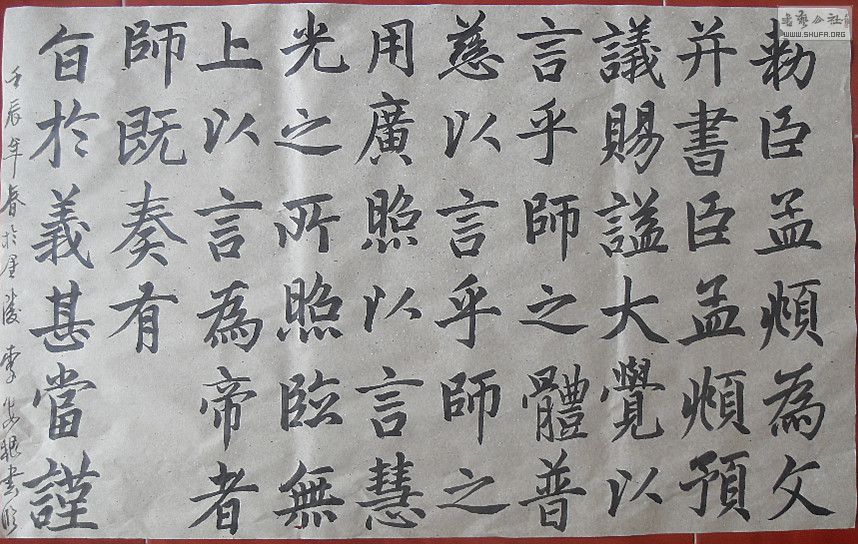 勅臣孟頫為文
并書臣孟頫預
議賜謚大覺以
言乎師之體普
慈以言乎師之
用廣照以言慧
光之所照臨無
上以言為帝者
師既奏有
旨於義甚當謹
壬辰年春於陵李書
书艺公社
WWW.SHUFA.ORG